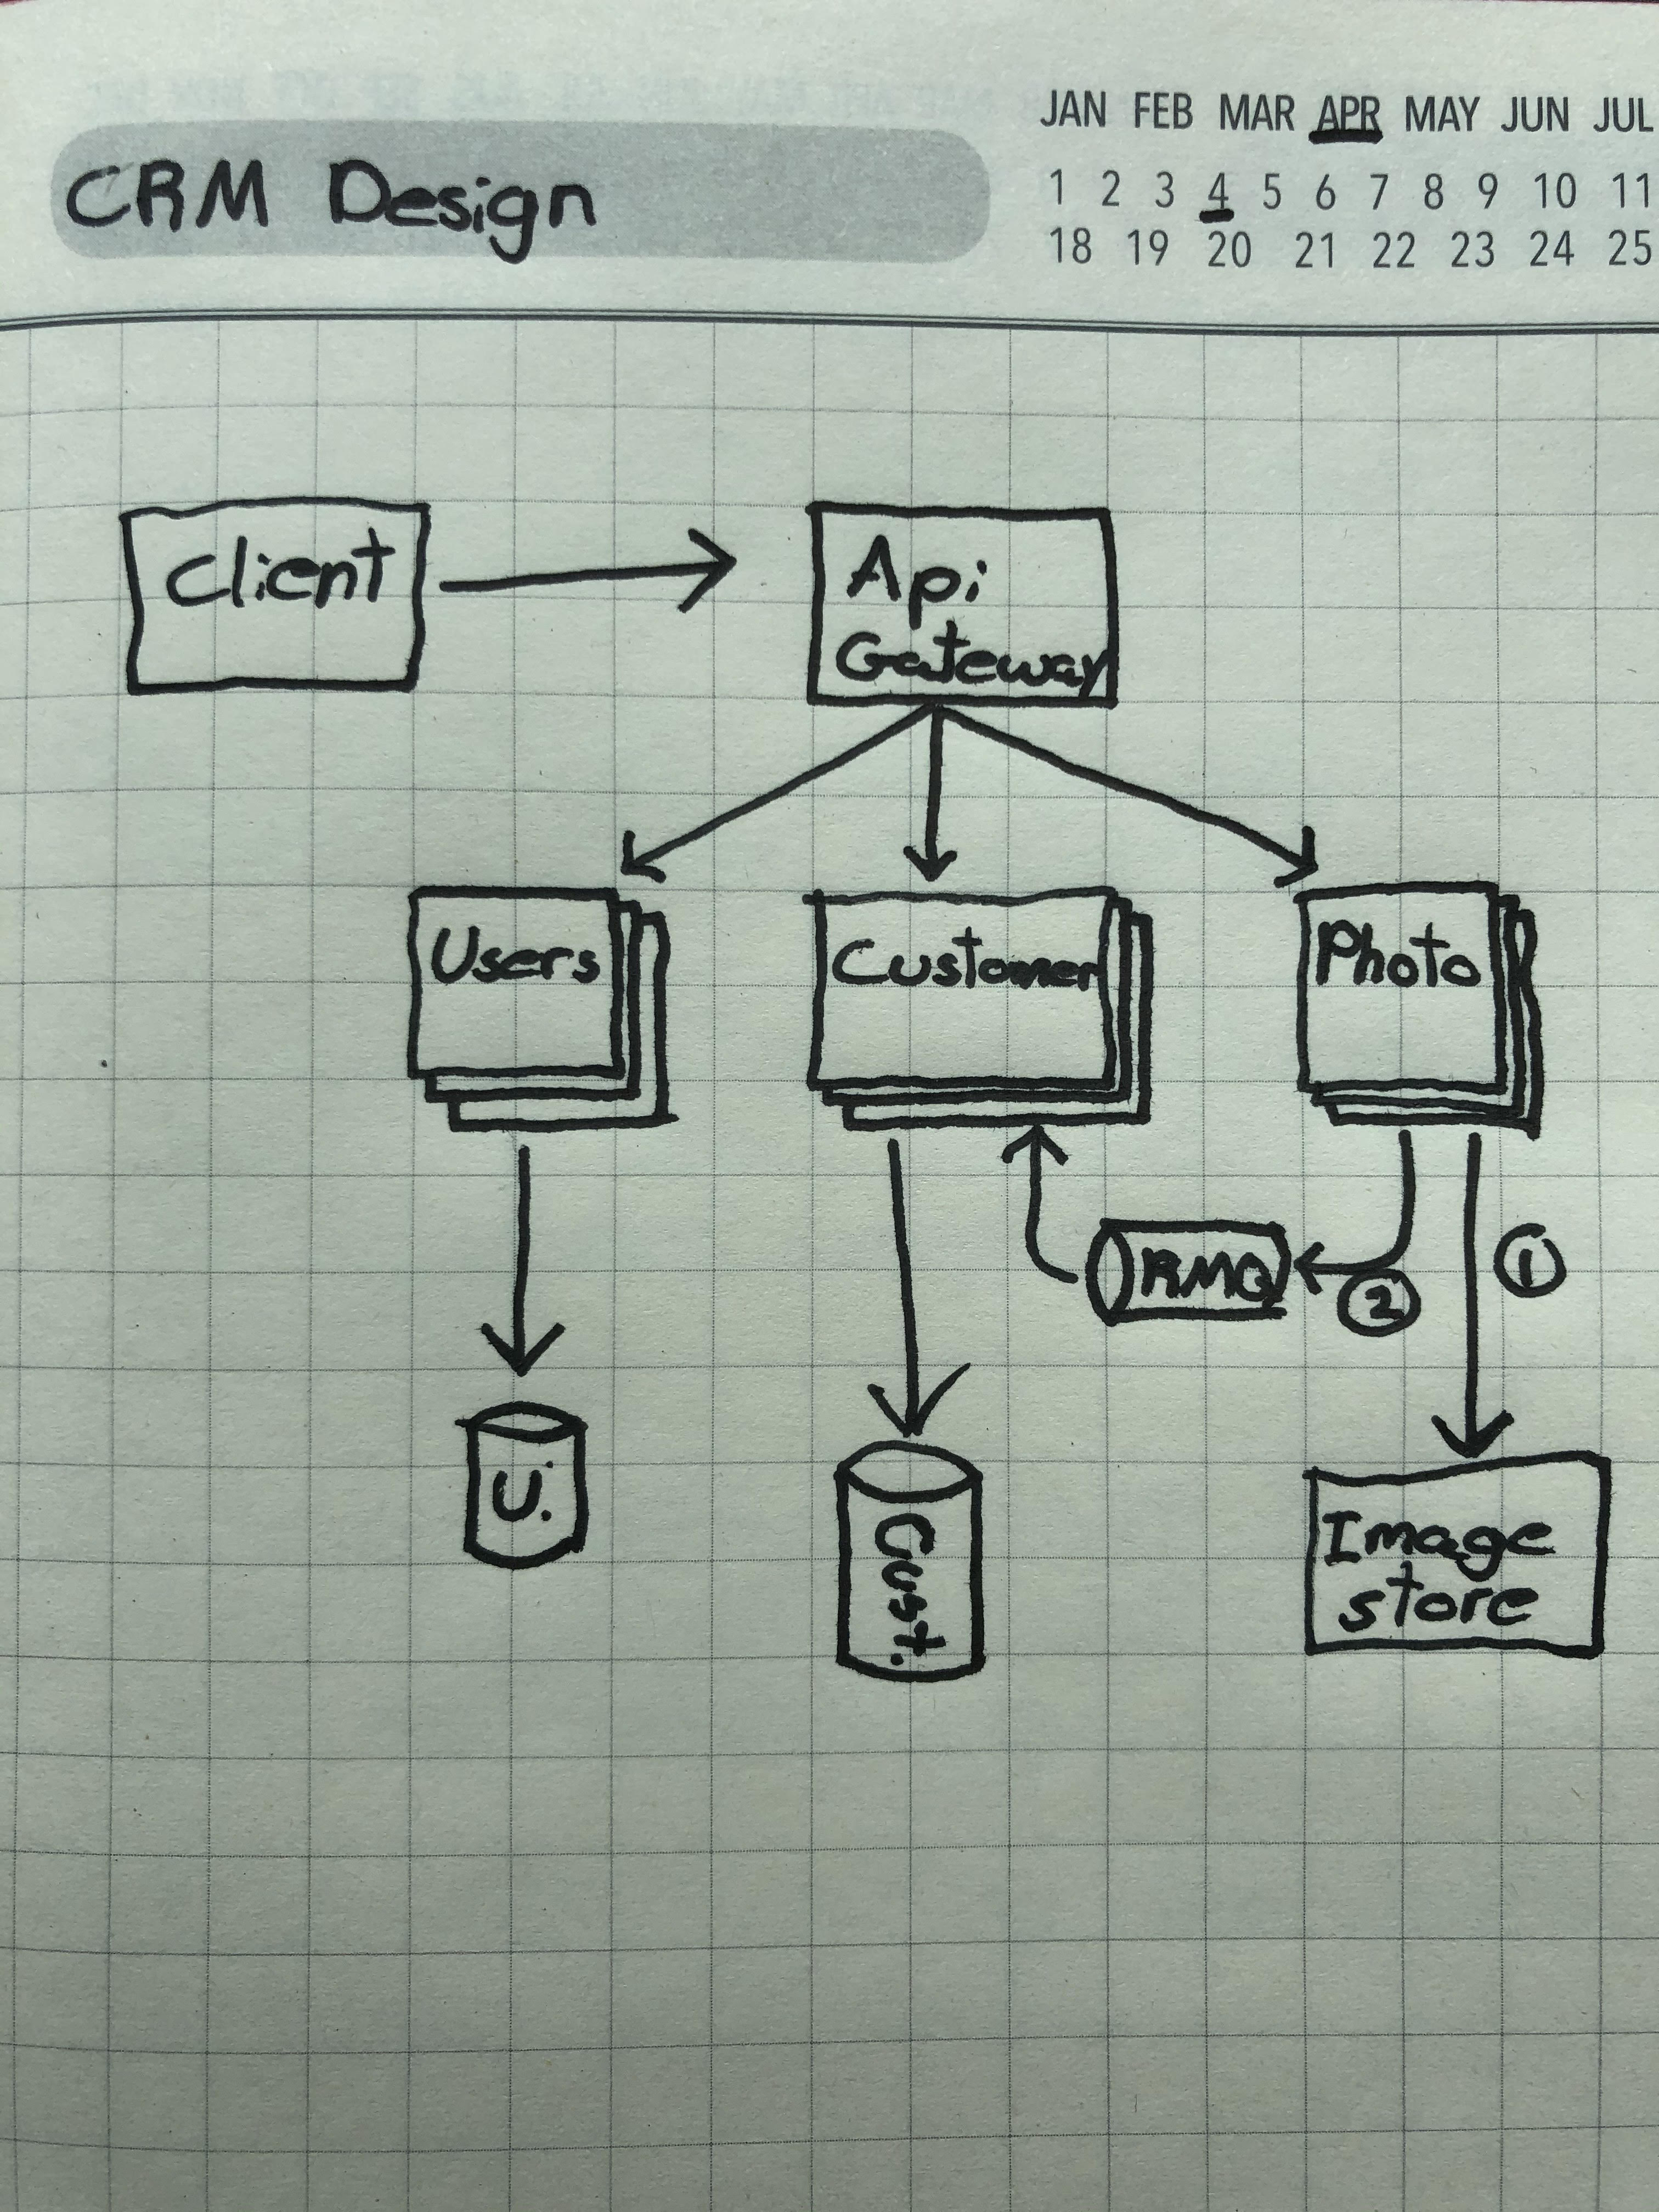 JAN FEB MAR APR MAY JUN JUL
CRM Design
1 2 3 4 5 6 7 8 9 10 11
18 19 20 21 22 23 24 25
Client
Api
Gateway
Users
Customer
Photo
RMQ
2
1
U.
Cust.
Image
store